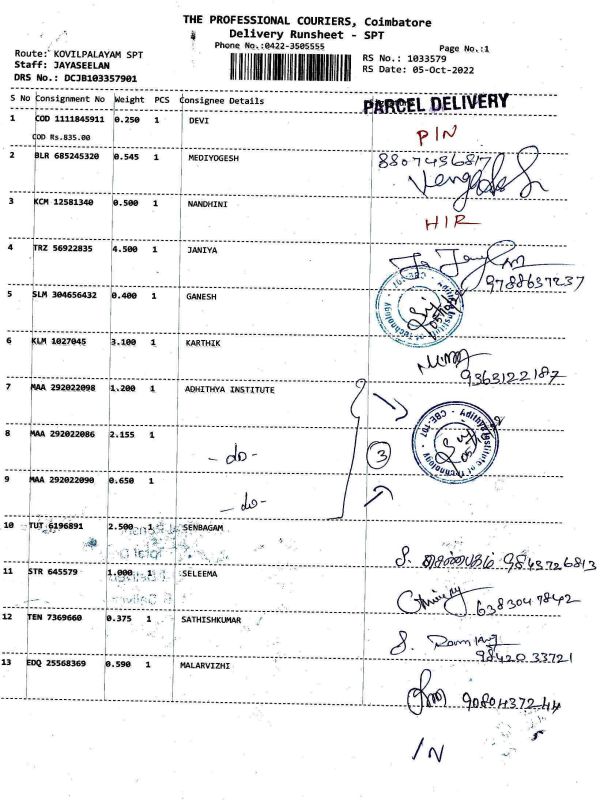 THE PROFESSIONAL COURIERS, Coimbatore
Delivery Runsheet - SPT
Phone No.:0422-3505555
Page No.:1
Route: KOVILPALAYAM SPT
Staff: JAYASEELAN
DRS No.: DCJB103357901
RS No.: 1033579
RS Date: 05-Oct-2022
S No Consignment No Weight PCS Consignee Details
PARCEL DELIVERY
1 COD 1111845911 0.250 1 DEVI
COD Rs.835.00
PIN
2 BLR 685245320 0.545 1 MEDIYOGESH
8807436817
3 KCM 12581340 0.500 1 NANDHINI
HIR
4 TRZ 56922835 4.500 1 JANIYA
9788637237
5 SLM 304656432 0.400 1 GANESH
6 KLM 1027045 3.100 1 KARTHIK
9363122187
7 MAA 292022098 1.200 1 ADHITHYA INSTITUTE
8 MAA 292022086 2.155 1
- do -
3
9 MAA 292022090 0.650 1
- do -
10 TUT 6196891 2.500 1 SENBAGAM
S. செண்பகம் 9843726813
11 STR 645579 1.000 1 SELEEMA
6383047842
12 TEN 7369660 0.375 1 SATHISHKUMAR
9842033721
13 EDQ 25568369 0.590 1 MALARVIZHI
9080437244
IN